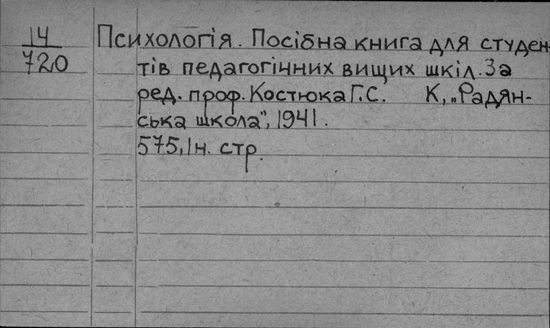 14
720
Психологія. Посібна книга для студен-
тів педагогічних вищих шкіл. За
ред. проф. Костюка Г.С. К, „Радян-
ська школа", 1941.
575, 1н. стр.